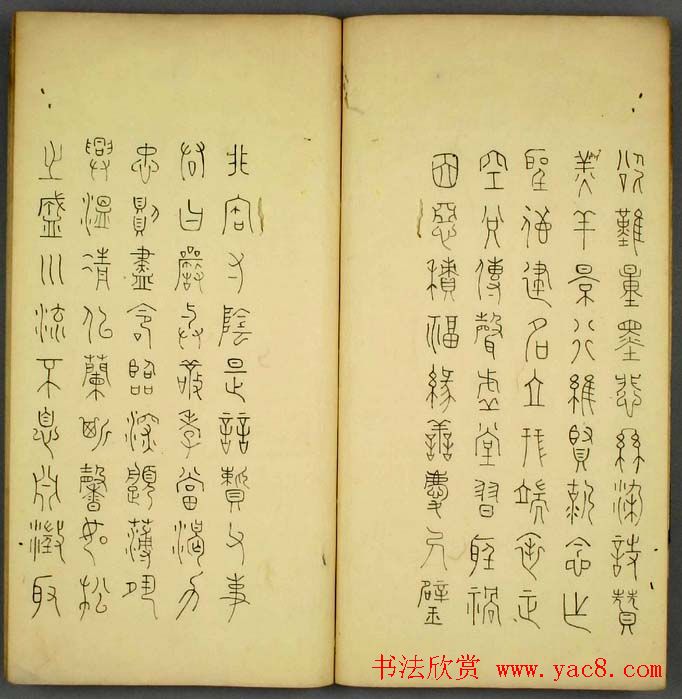 欲難量墨悲絲染詩贊
羔羊景行維賢剋念作
聖德建名立形端表正
空谷傳聲虛堂習聽禍
因惡積福緣善慶尺璧
非寶寸陰是競資父事
君曰嚴與敬孝當竭力
忠則盡命臨深履薄夙
興溫清似蘭斯馨如松
之盛川流不息淵澄取
书法欣赏 www.yac8.com